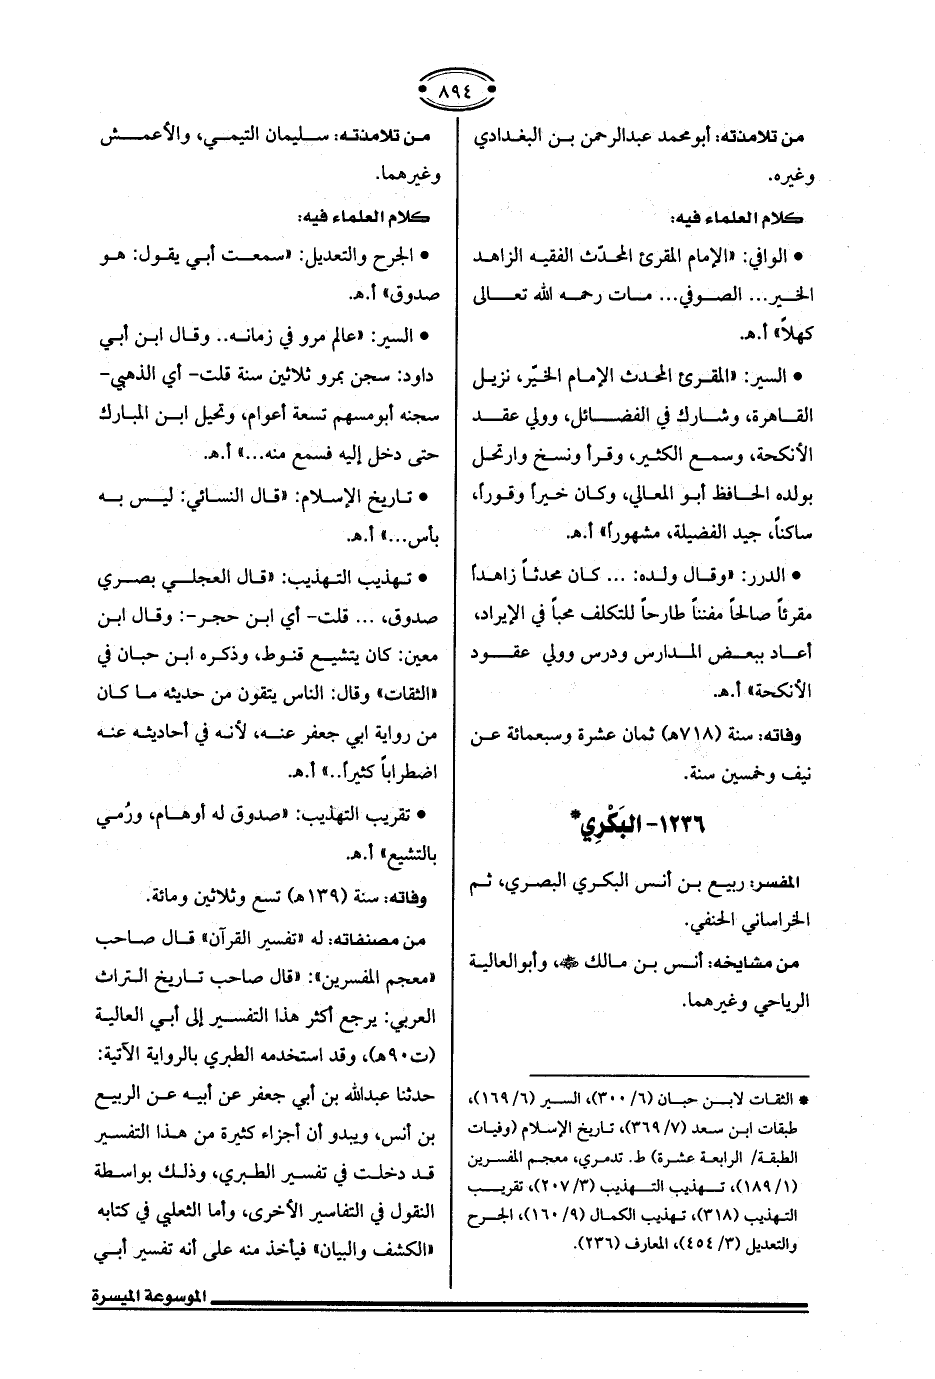 ٨٩٤
من تلامذته: أبو محمد عبدالرحمن بن البغدادي
وغيره.
كلام العلماء فيه:
• الوافي: «الإمام المقرئ المحدّث الفقيه الزاهد
الخير... الصوفي... مات رحمه الله تعالى
كهلاً» أ.هـ.
• السير: «المقرئ المحدث الإمام الخيّر، نزيل
القاهرة، وشارك في الفضائل، وولي عقد
الأنكحة، وسمع الكثير، وقرأ ونسخ وارتحل
بولده الحافظ أبو المعالي، وكان خيراً وقوراً،
ساكناً، جيد الفضيلة، مشهوراً» أ.هـ.
• الدرر: «وقال ولده: ... كان محدثاً زاهداً
مقرئاً صالحاً مفنناً طارحاً للتكلف محباً في الإيراد،
أعاد ببعض المدارس ودرس وولي عقود
الأنكحة» أ.هـ.
وفاته: سنة (٧١٨هـ) ثمان عشرة وسبعمائة عن
نيف وخمسين سنة.
١٢٣٦- البَكْرِي*
المفسر: ربيع بن أنس البكري البصري، ثم
الخراساني الحنفي.
من مشايخه: أنس بن مالك ﷺ، وأبو العالية
الرياحي وغيرهما.
* الثقات لابن حبان (٦/٣٠٠)، السير (٦/١٦٩)،
طبقات ابن سعد (٧/٣٦٩)، تاريخ الإسلام (وفيات
الطبقة/ الرابعة عشرة) ط. تدمري، معجم المفسرين
(١/١٨٩)، تهذيب التهذيب (٣/٢٠٧)، تقريب
التهذيب (٣١٨)، تهذيب الكمال (٩/١٦٠)، الجرح
والتعديل (٣/٤٥٤)، المعارف (٢٣٦).
من تلامذته: سليمان التيمي، والأعمش
وغيرهما.
كلام العلماء فيه:
• الجرح والتعديل: «سمعت أبي يقول: هو
صدوق» أ.هـ.
• السير: «عالم مرو في زمانه.. وقال ابن أبي
داود: سجن بمرو ثلاثين سنة قلت- أي الذهبي-
سجنه أبو مسهم تسعة أعوام، وتحيل ابن المبارك
حتى دخل إليه فسمع منه...» أ.هـ.
• تاريخ الإسلام: «قال النسائي: ليس به
بأس...» أ.هـ.
• تهذيب التهذيب: «قال العجلي بصري
صدوق، ... قلت- أي ابن حجر-: وقال ابن
معين: كان يتشيع قنوط، وذكره ابن حبان في
«الثقات» وقال: الناس يتقون من حديثه ما كان
من رواية ابي جعفر عنه، لأنه في أحاديثه عنه
اضطراباً كثيراً..» أ.هـ.
• تقريب التهذيب: «صدوق له أوهام، ورُمي
بالتشيع» أ.هـ.
وفاته: سنة (١٣٩هـ) تسع وثلاثين ومائة.
من مصنفاته: له «تفسير القرآن» قال صاحب
«معجم المفسرين»: «قال صاحب تاريخ التراث
العربي: يرجع أكثر هذا التفسير إلى أبي العالية
(ت٩٠هـ)، وقد استخدمه الطبري بالرواية الآتية:
حدثنا عبدالله بن أبي جعفر عن أبيه عن الربيع
بن أنس، ويبدو أن أجزاء كثيرة من هذا التفسير
قد دخلت في تفسير الطبري، وذلك بواسطة
النقول في التفاسير الأخرى، وأما الثعلبي في كتابه
«الكشف والبيان» فيأخذ منه على أنه تفسير أبي
الموسوعة الميسرة